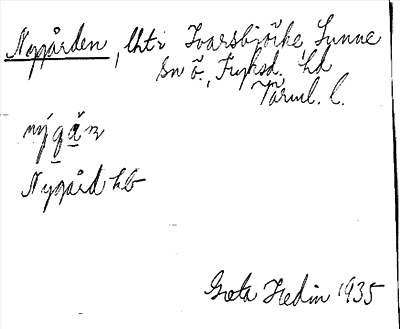 Nygården, lht i Ivarsbjörke, Sunne
sn ö., Fryksd. hd
Värml. l.
nýgån
Nygård hb
Greta Hedin 1935